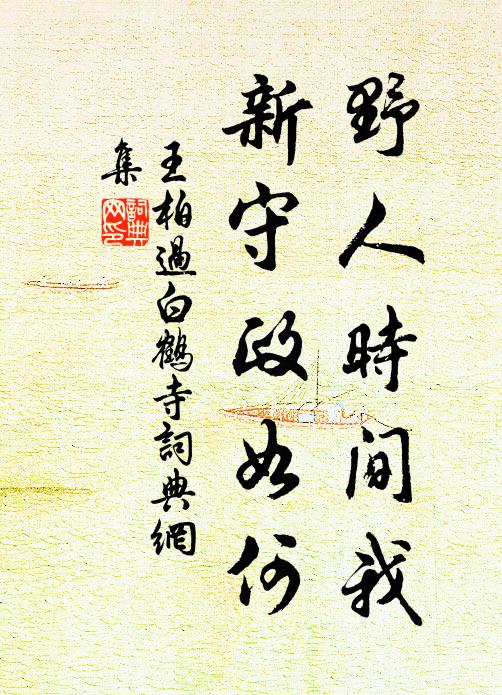 野人時間我
新守政如何
王柏過白鶴寺詞典網
集
詞典
网印